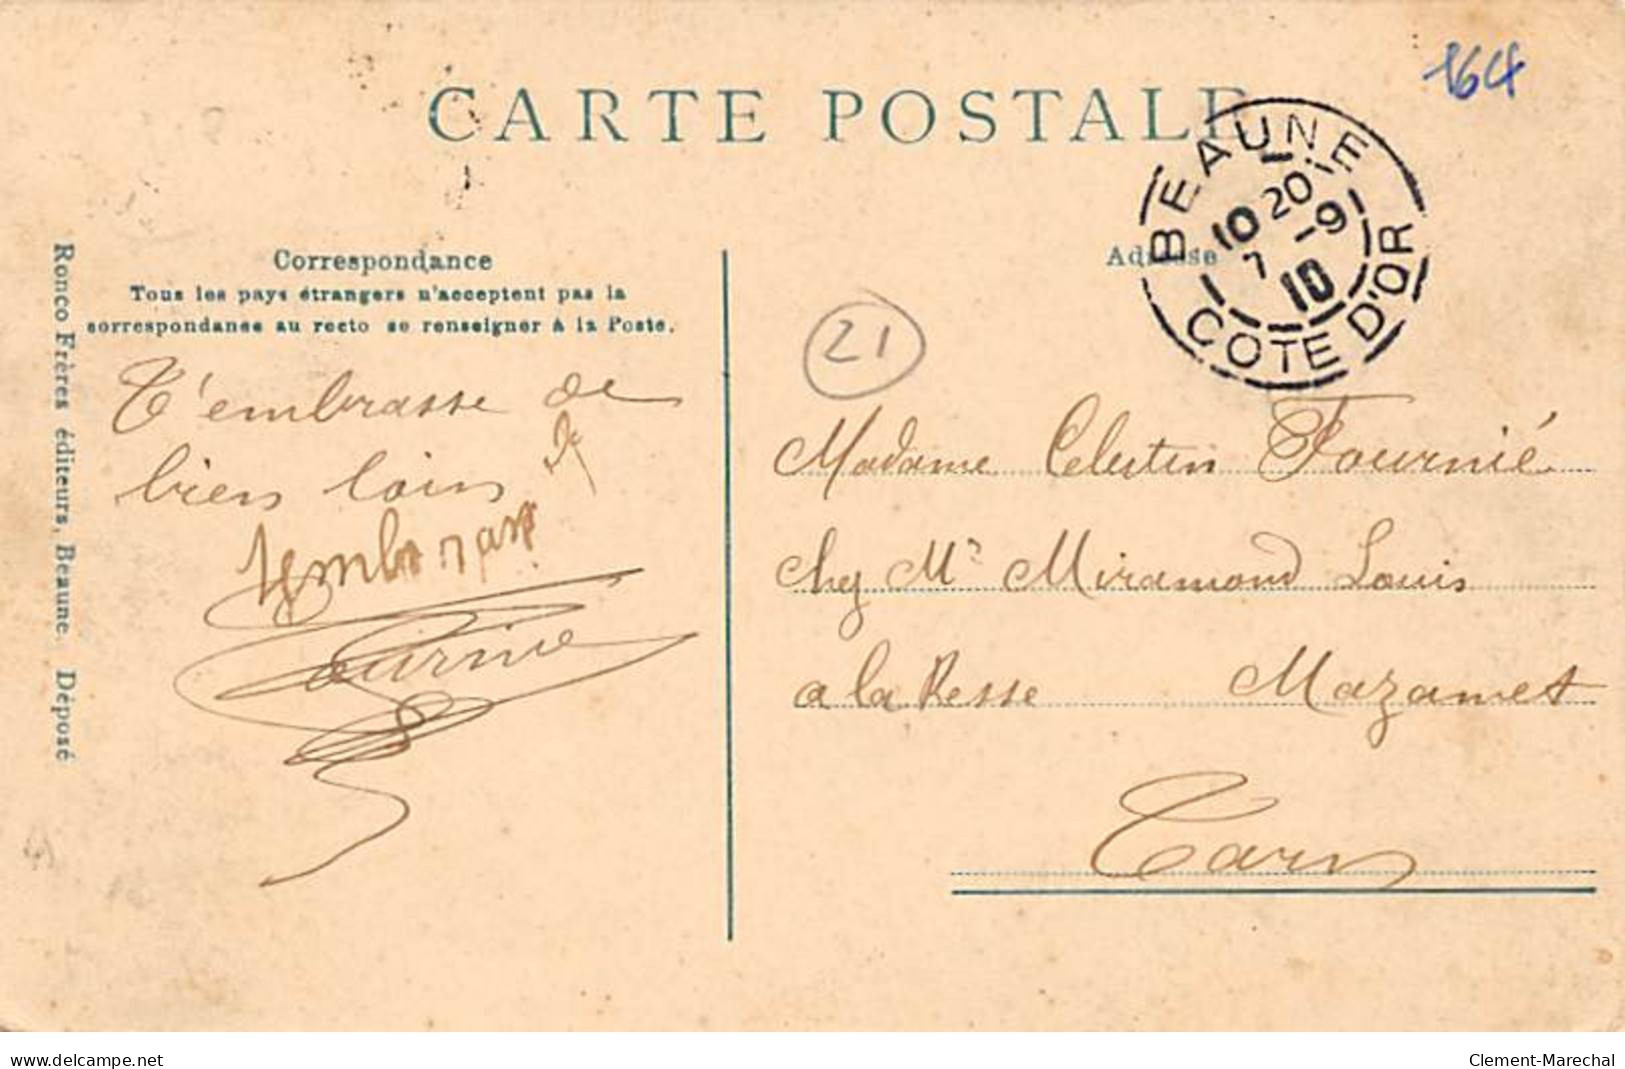 164
CARTE POSTALE
BEAUNE
10 20
7 - 9
10
COTE D'OR
Ronco Frères éditeurs, Beaune. Déposé
Correspondance
Tous les pays étrangers n'acceptent pas la
correspondance au recto se renseigner à la Poste.
T'embrasse de
bien loin
Fournié
Adresse
21
Madame Celestin Fournié
chez Mr Miramond Louis
a la Resse Mazamet
Tarn
www.delcampe.net
Clement-Marechal